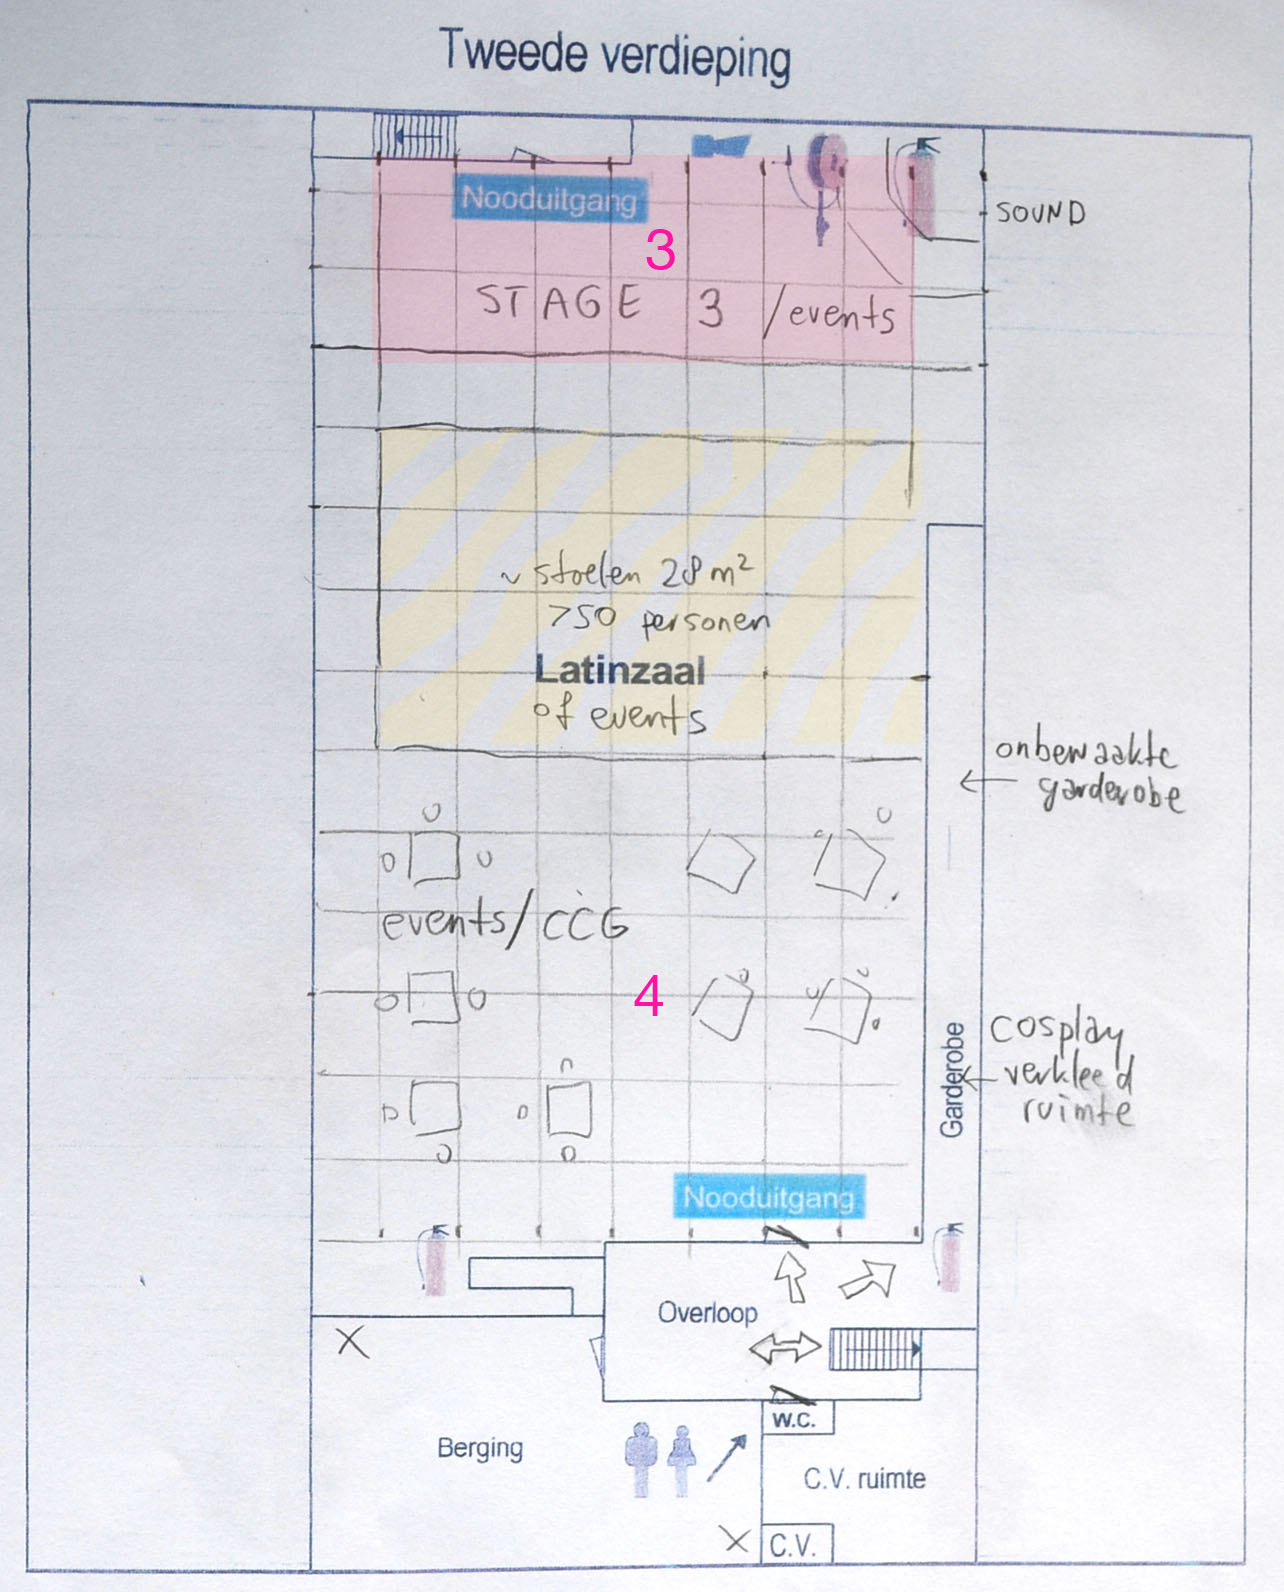 Tweede verdieping
Nooduitgang
SOUND
3
STAGE 3 /events
~ stoelen 28 m²
>50 personen
Latinzaal
of events
onbewaakte
garderobe
events/CCG
4
Garderobe
cosplay
verkleed
ruimte
Nooduitgang
Overloop
X
W.C.
Berging
C.V. ruimte
X
C.V.